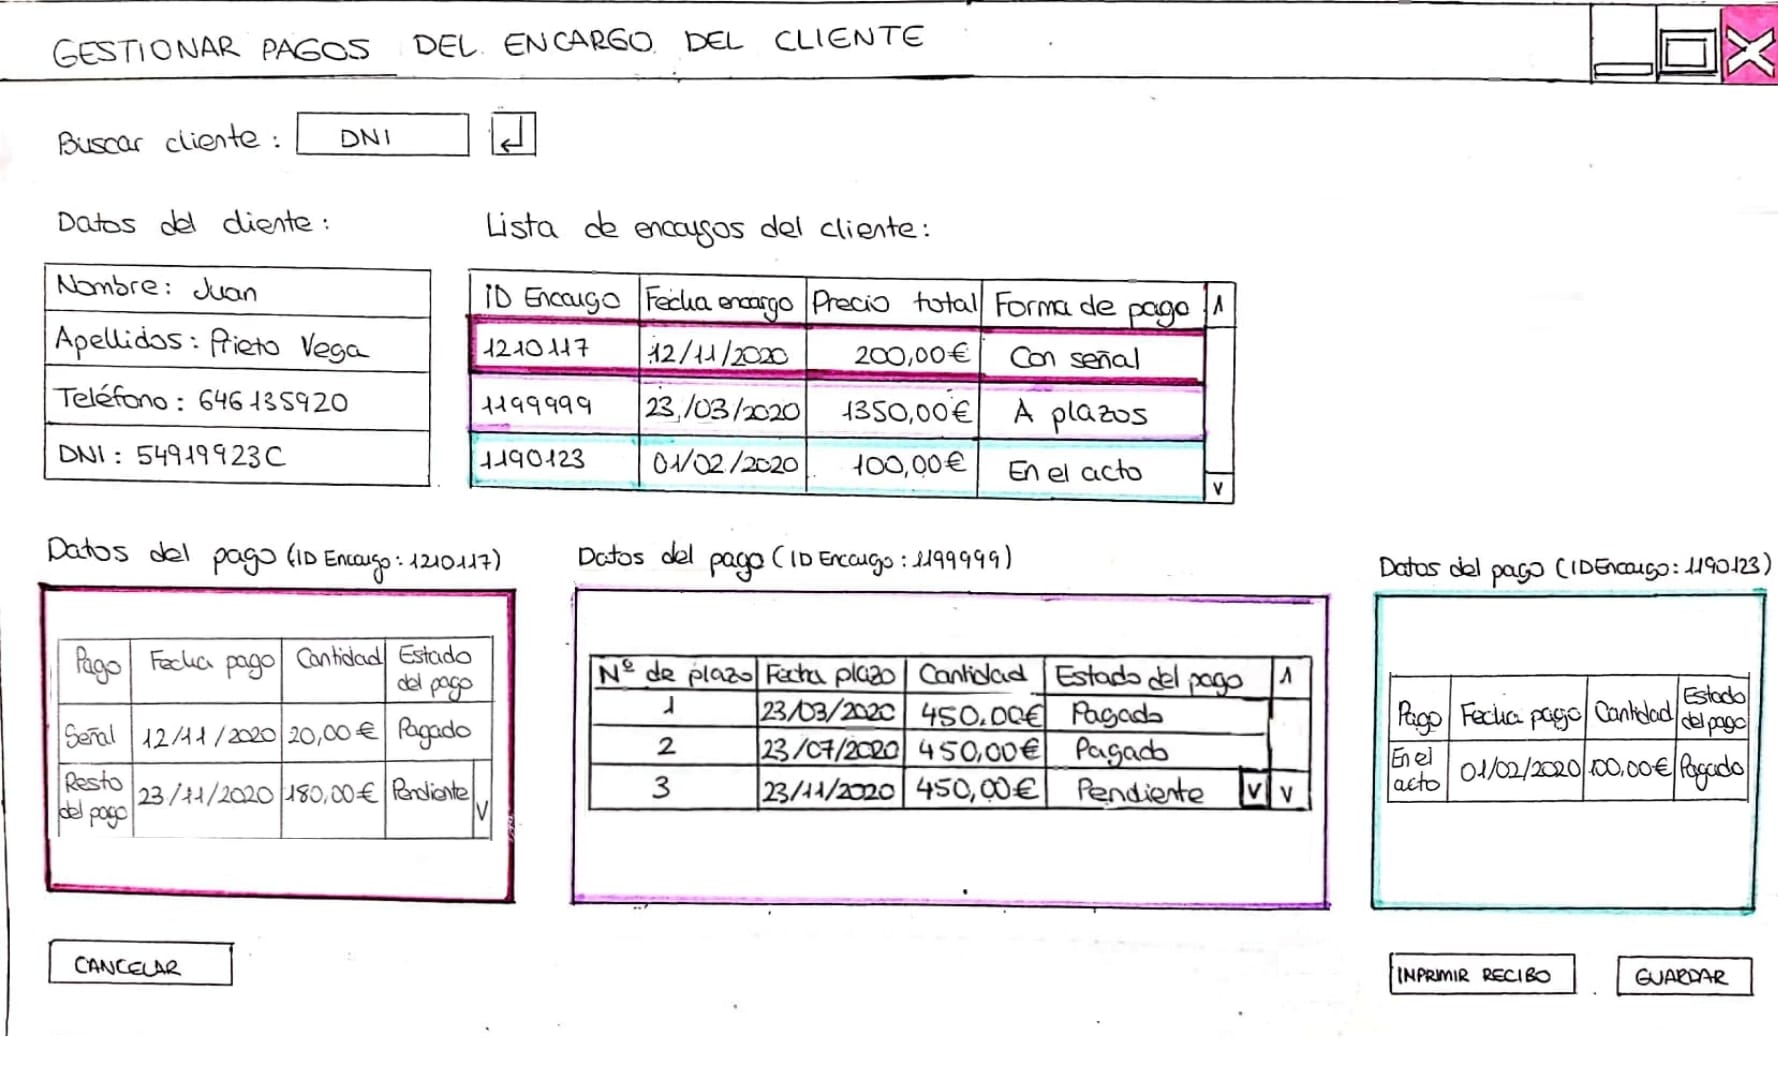 GESTIONAR PAGOS DEL ENCARGO DEL CLIENTE
Buscar cliente: DNI
Datos del cliente:
Nombre: Juan
Apellidos: Prieto Vega
Teléfono: 646135920
DNI: 54919923C
Lista de encargos del cliente:
ID Encargo Fecha encargo Precio total Forma de pago
1210117 12/11/2020 200,00€ Con señal
1199999 23/03/2020 1350,00€ A plazos
1190123 01/02/2020 100,00€ En el acto
Datos del pago (ID Encargo: 1210117)
Pago Fecha pago Cantidad Estado
del pago
Señal 12/11/2020 20,00€ Pagado
Resto
del pago 23/11/2020 180,00€ Pendiente
Datos del pago (ID Encargo: 1199999)
Nº de plazo Fecha plazo Cantidad Estado del pago
1 23/03/2020 450,00€ Pagado
2 23/07/2020 450,00€ Pagado
3 23/11/2020 450,00€ Pendiente
Datos del pago (ID Encargo: 1190123)
Pago Fecha pago Cantidad Estado
del pago
En el
acto 01/02/2020 100,00€ Pagado
CANCELAR
INPRIMIR RECIBO
GUARDAR